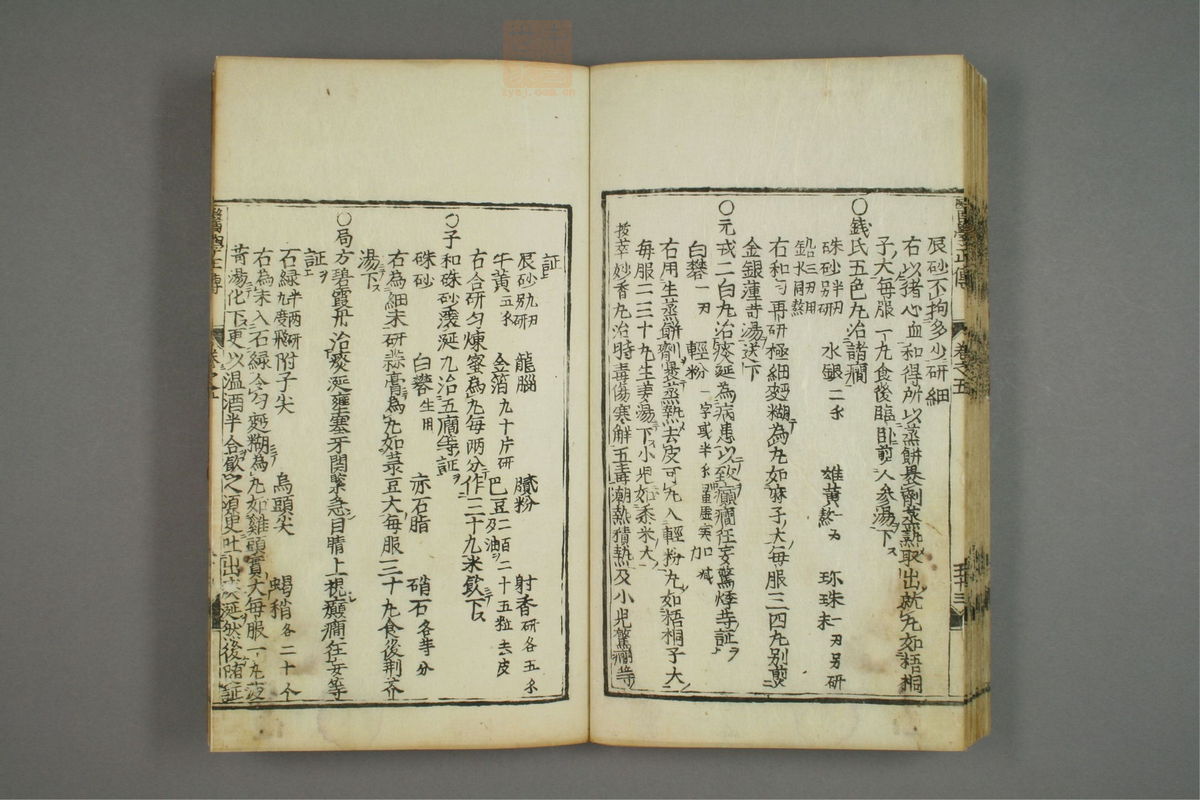 辰砂不拘多少研細
右以猪心血和得所以蒸餅裹劑蒸熟取出就丸如梧桐
子大每服一丸食後臨卧煎人參湯下
○錢氏五色丸治諸癇
硃砂半刃另研 水銀二分 雄黃熬一刃 珎珠末一刃另研
鉛三刃用水銀熬
右和勻再研極細麪糊為丸如麻子大每服三四丸別煎
金銀蓮荷湯送下
○元戎二白丸治痰涎為病患以致癲癇狂妄驚悸等証
白礬一刃 輕粉一字或半分量虛實加減
右用生蒸餅劑裹蒸熟去皮可丸入輕粉丸如梧桐子大
每服二三十丸生姜湯下小児如黍米大
拔萃妙香丸治時毒傷寒解五毒潮熱積熱及小児驚癇等
証
辰砂九刃另研 龍腦 膩粉 射香研各五分
牛黃五分 金箔九十片研 巴豆二百二十五粒去皮及油
右合研勻煉蜜為丸每兩分作三十丸米飲下
○子和硃砂滾涎丸治五癇等証
硃砂 白礬生用 赤石脂 硝石各等分
右為細末研蒜膏為丸如菉豆大每服三十丸食後荆芥
湯下
○局方碧霞丹治痰涎壅塞牙関緊急目睛上視癲癇狂妄等
証
石緑半兩研九度飛 附子尖 烏頭尖 蝎稍各二十个
右為末入石緑令勻麪糊為丸如雞頭實大每服一丸薄
荷湯化下更以温酒半合飲之須臾吐出痰涎然後随証
醫學正傳 卷之五